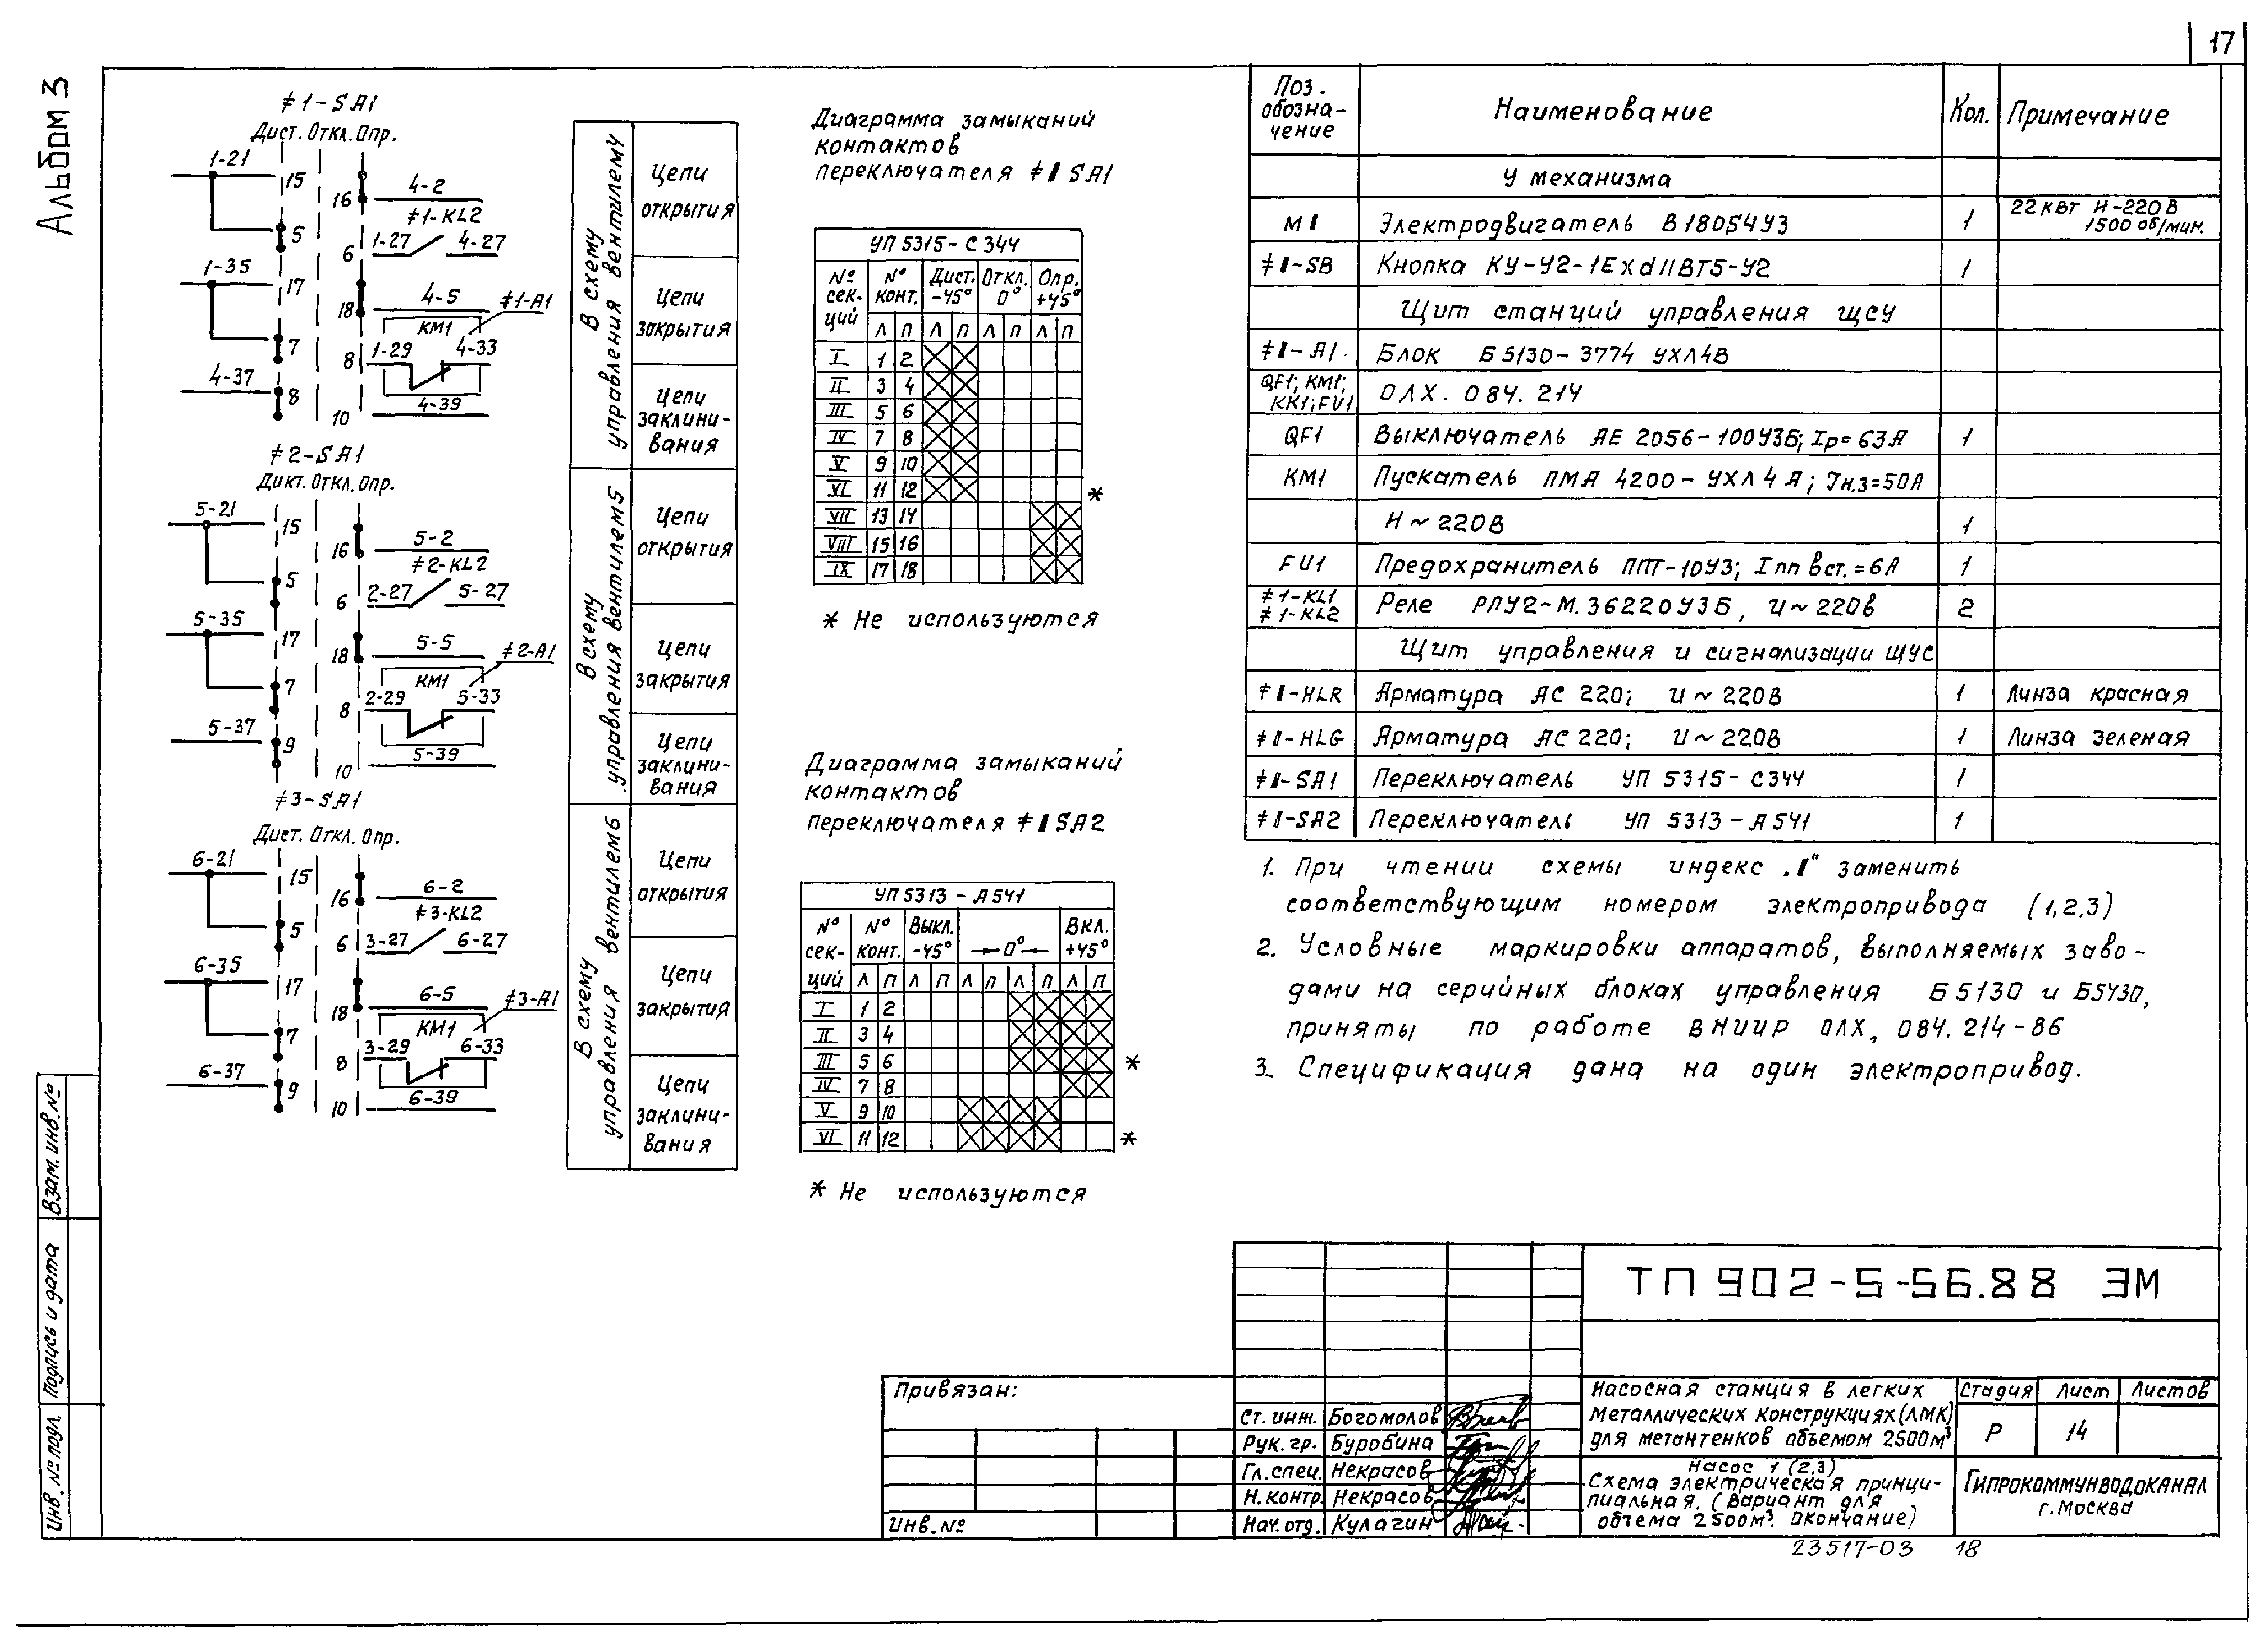 17
Альбом 3
≠1-SA1
Дист. Откл. Опр.
1-21
15
16
4-2
≠1-KL2
5
6
1-27
4-27
1-35
17
18
4-5
≠1-A1
KM1
7
8
1-29
4-33
4-37
8
10
4-39
≠2-SA1
Дикт. Откл. Опр.
5-21
15
16
5-2
≠2-KL2
5
6
2-27
5-27
5-35
17
18
5-5
≠2-A1
KM1
7
8
2-29
5-33
5-37
9
10
5-39
≠3-SA1
Дист. Откл. Опр.
6-21
15
16
6-2
≠3-KL2
5
6
3-27
6-27
6-35
17
18
6-5
≠3-A1
KM1
7
8
3-29
6-33
6-37
9
10
6-39
В схему
управления вентилему
Цепи
открытия
Цепи
закрытия
Цепи
заклини-
вания
В схему
управления вентилем5
Цепи
открытия
Цепи
закрытия
Цепи
заклини-
вания
В схему
управления вентилем6
Цепи
открытия
Цепи
закрытия
Цепи
заклини-
вания
Диаграмма замыканий
контактов
переключателя ≠I SA1
УП 5315-С344
№ сек-ций № конт. Дист. -45° Откл. 0° Опр. +45°
Л П Л П Л П Л П
I 1 2
II 3 4
III 5 6
IV 7 8
V 9 10
VI 11 12 *
VII 13 14
VIII 15 16
IX 17 18
* Не используются
Диаграмма замыканий
контактов
переключателя ≠I SA2
УП 5313-А541
№ сек-ций № конт. Выкл. -45° 0° Вкл. +45°
Л П Л П Л П Л П Л П
I 1 2
II 3 4
III 5 6 *
IV 7 8
V 9 10
VI 11 12 *
* Не используются
Поз. обозна-чение Наименование Кол. Примечание
У механизма
М1 Электродвигатель В180S4У3 1 22 кВт И-220В 1500 об/мин.
≠I-SB Кнопка КУ-У2-1ЕхdIIВТ5-У2 1
Щит станций управления ЩСУ
≠I-A1. Блок Б5130-3774 УХЛ4В
QF1; KM1; KK1; FU1 ОЛХ. 084. 214
QF1 Выключатель АЕ 2056-100УЗБ; Iр=63А 1
KM1 Пускатель ПМА 4200-УХЛ4А; Iн.э=50А
И~220В 1
FU1 Предохранитель ППТ-10У3; Iпп вст.=6А 1
≠1-KL1 ≠1-KL2 Реле РПУ2-М.36220УЗБ, И~220В 2
Щит управления и сигнализации ЩУС
≠I-HLR Арматура АС 220; И~220В 1 Линза красная
≠I-HLG Арматура АС 220; И~220В 1 Линза зеленая
≠I-SA1 Переключатель УП 5315-С344 1
≠I-SA2 Переключатель УП 5313-А541 1
1. При чтении схемы индекс „I“ заменить
соответствующим номером электропривода (1,2,3)
2. Условные маркировки аппаратов, выполняемых заво-
дами на серийных блоках управления Б5130 и Б5430,
приняты по работе ВНИИР ОЛХ, 084.214-86
3. Спецификация дана на один электропривод.
ТП 902-5-56.88 ЭМ
Привязан:
Инв. №
Ст. инж. Богомолов
Рук. гр. Буробина
Гл. спец. Некрасов
Н. контр. Некрасов
Нач. отд. Кулагин
Насосная станция в легких
металлических конструкциях (ЛМК)
для метантенков объемом 2500м³
Стадия Лист Листов
Р 14
Насос 1 (2,3)
Схема электрическая принци-
пиальная. (Вариант для
объема 2500м³. Окончание)
Гипрокоммунводоканал
г. Москва
23517-03 18
Взам. инв. №
Подпись и дата
Инв. № подл.